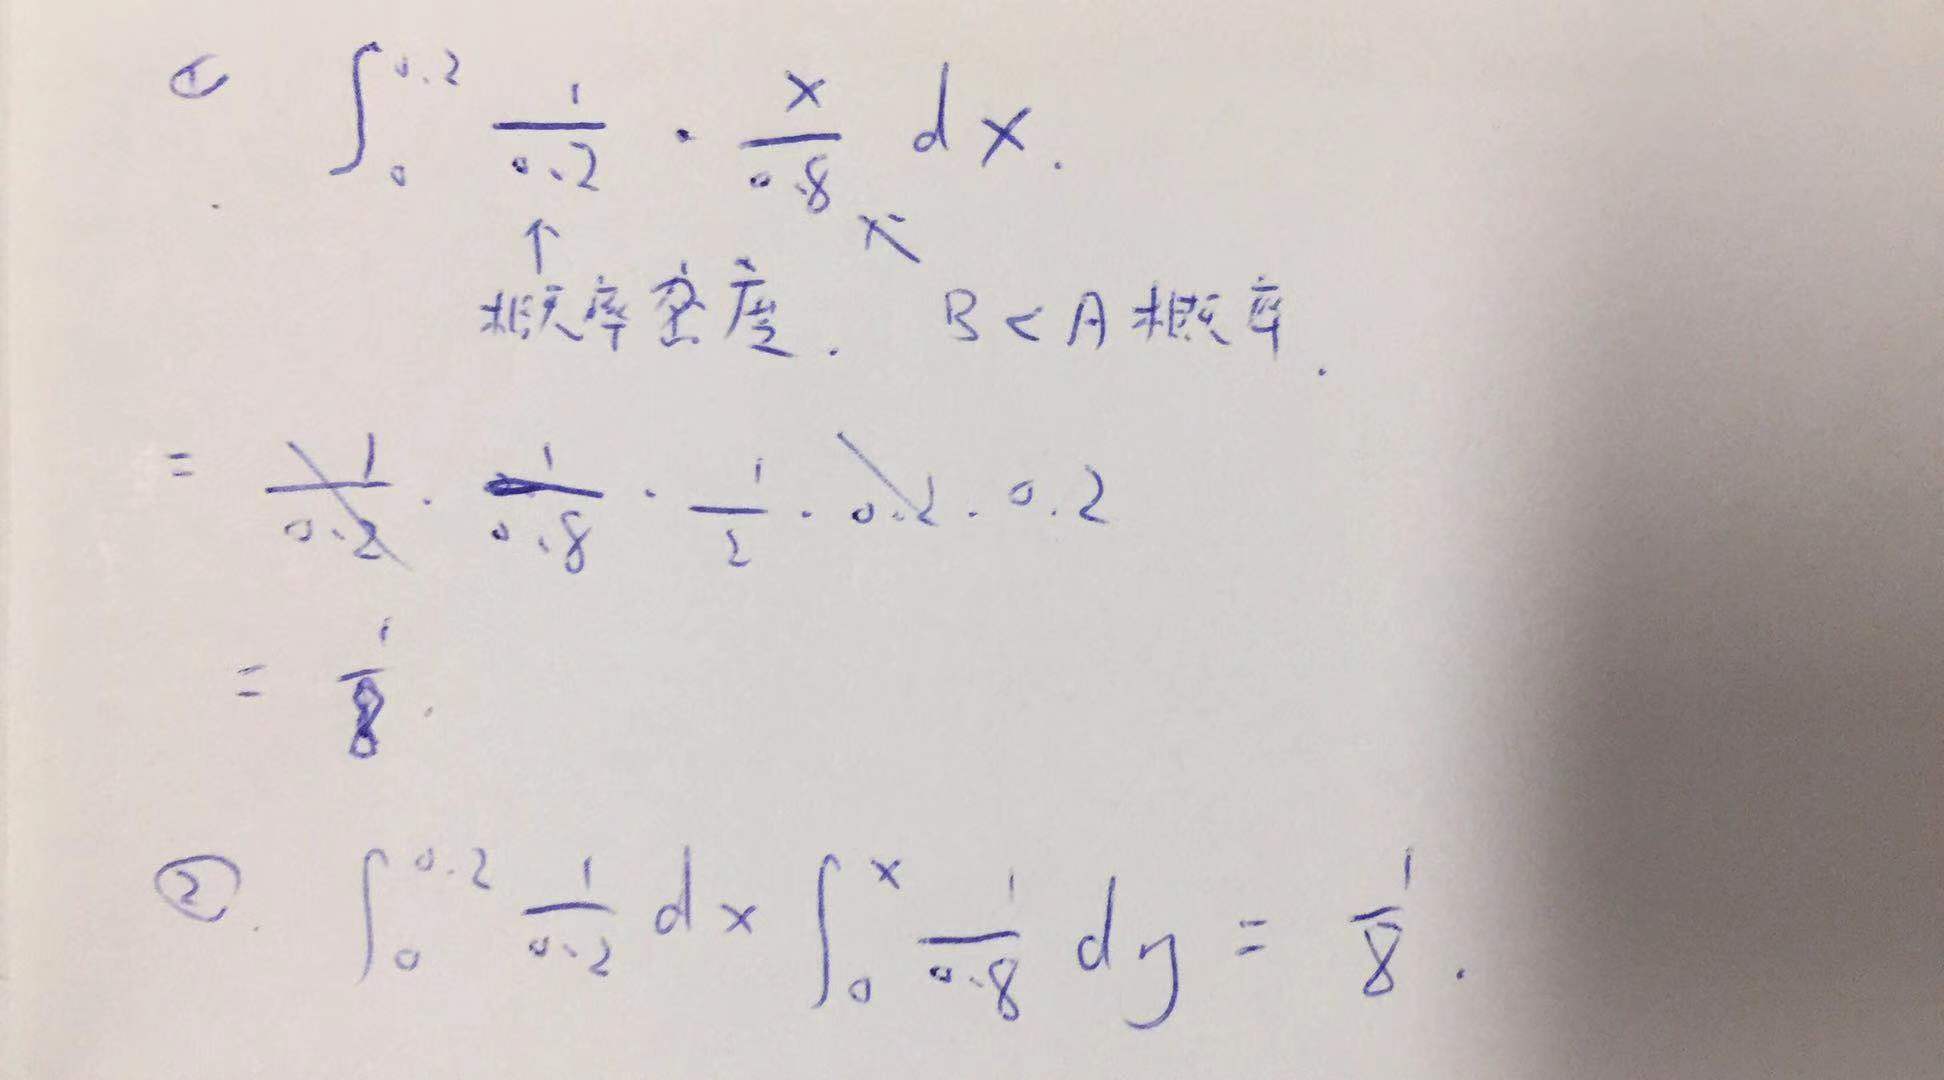 ① ∫₀^0.2 1/0.2 · x/0.8 dx.
↑ ↖
概率密度. B < A 概率.
= 1/0.2 · 1/0.8 · 1/2 · 0.2 · 0.2
= 1/8.
②. ∫₀^0.2 1/0.2 dx ∫₀^x 1/0.8 dy = 1/8.